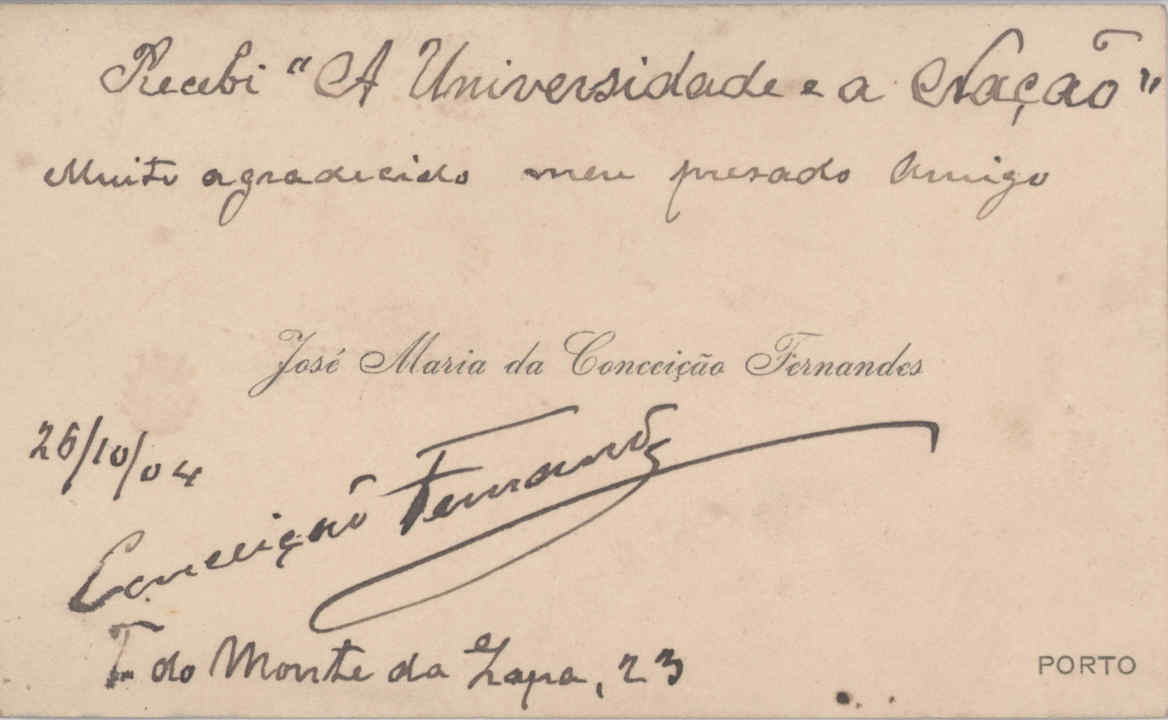 Recebi "A Universidade e a Nação"
Muito agradecido meu presado Amigo
José Maria da Conceição Fernandes
26/10/04
Conceição Fernandes
T. do Monte da Lapa, 23
PORTO